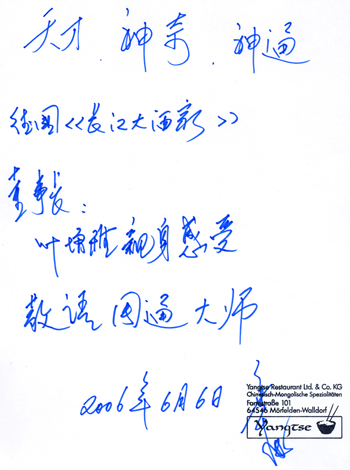 天才、神奇、神通
德国<<长江大酒家>>
董事长:
叶 雅亲身感受
敬语 国通大师
2006年6月6日
Yangtse Restaurant Ltd. & Co. KG
Chinesisch-Mongolische Spezialitäten
Farmstraße 101
64546 Mörfelden-Walldorf
Yangtse